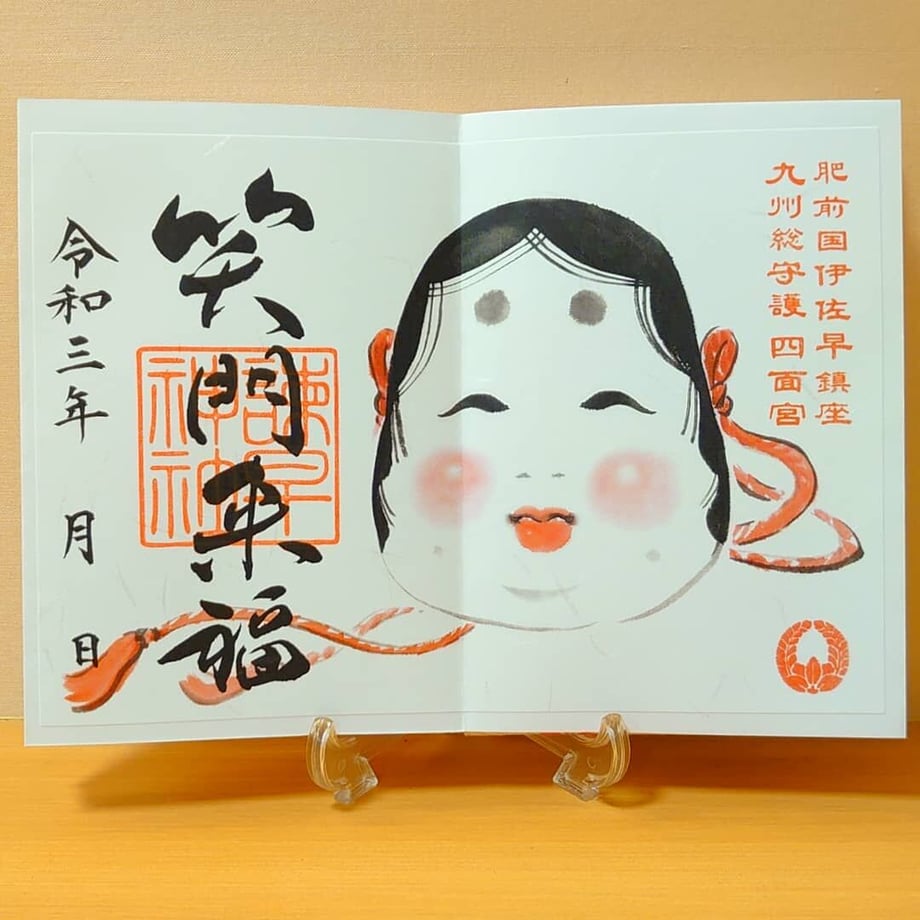 肥前国伊佐早鎮座
九州総守護 四面宮
笑門来福
諫早
神社
令和三年 月 日